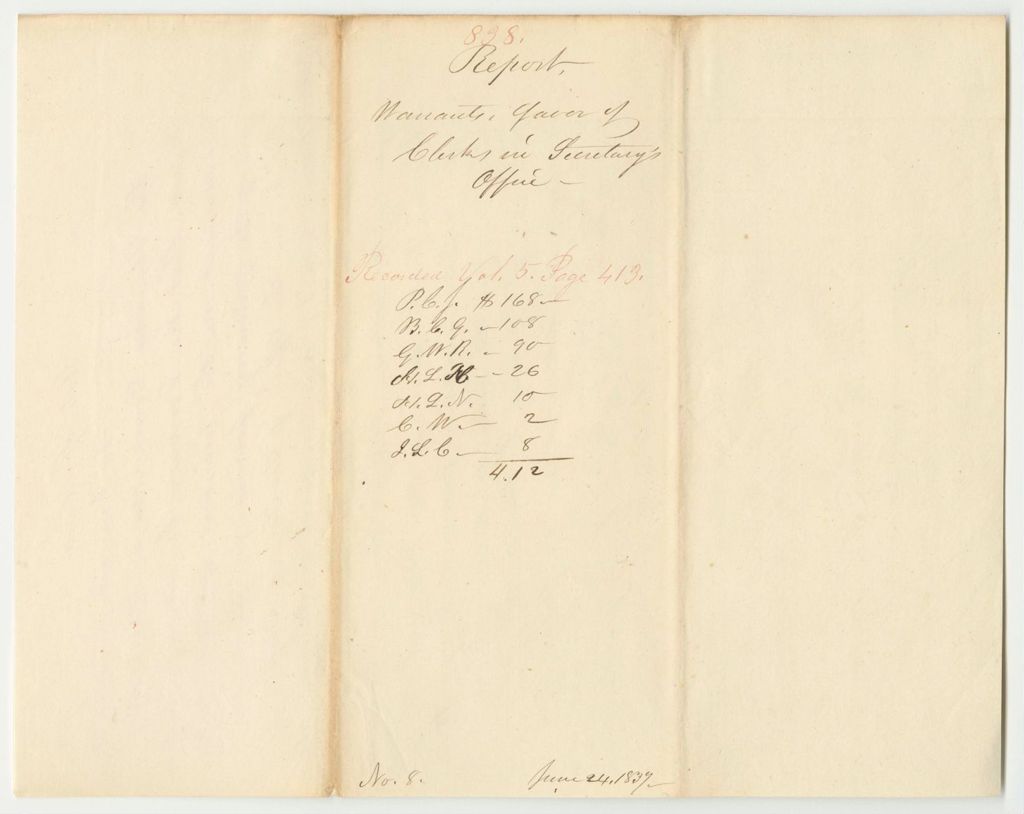 898.
Report,
Warrants, favor of
Clerks in Secretary's
Office -
Recorded Vol. 5. Page 413.
P.C.J. $168-
B.C.G. - 108
G.W.R. - 90
H.L.H - 26
H.L.N. 10
C.W. - 2
J.L.C - 8
4.12
No. 8. June 24, 1837